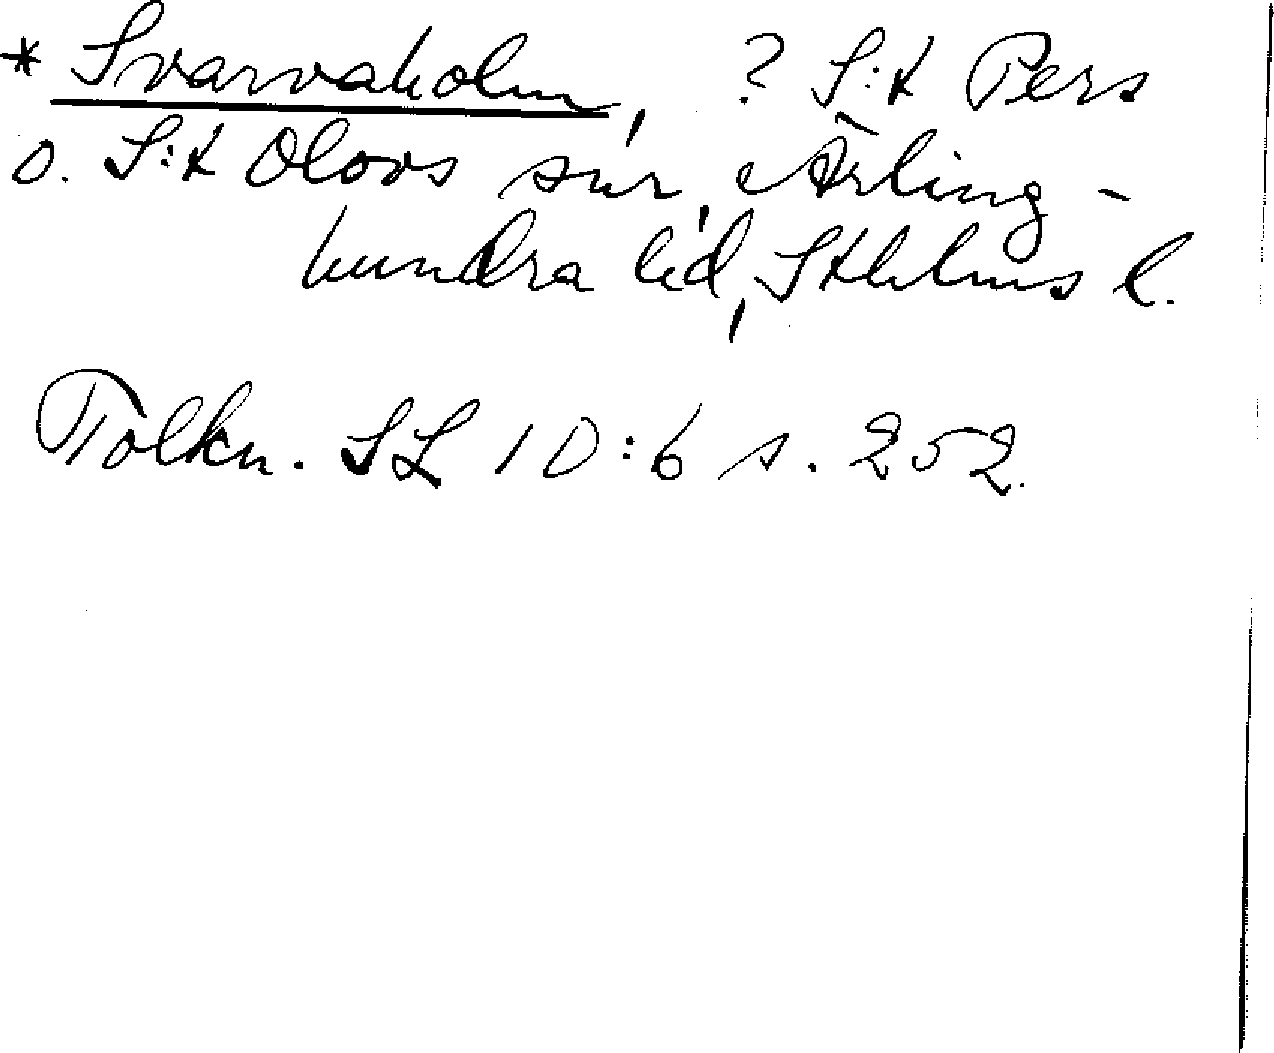 * Svarvaholm, ? S:t Pers
o. S:t Olovs snr, Ärling-
hundra hd, Sthlms l.
Tolkn. SL 1 D:6 s. 252.